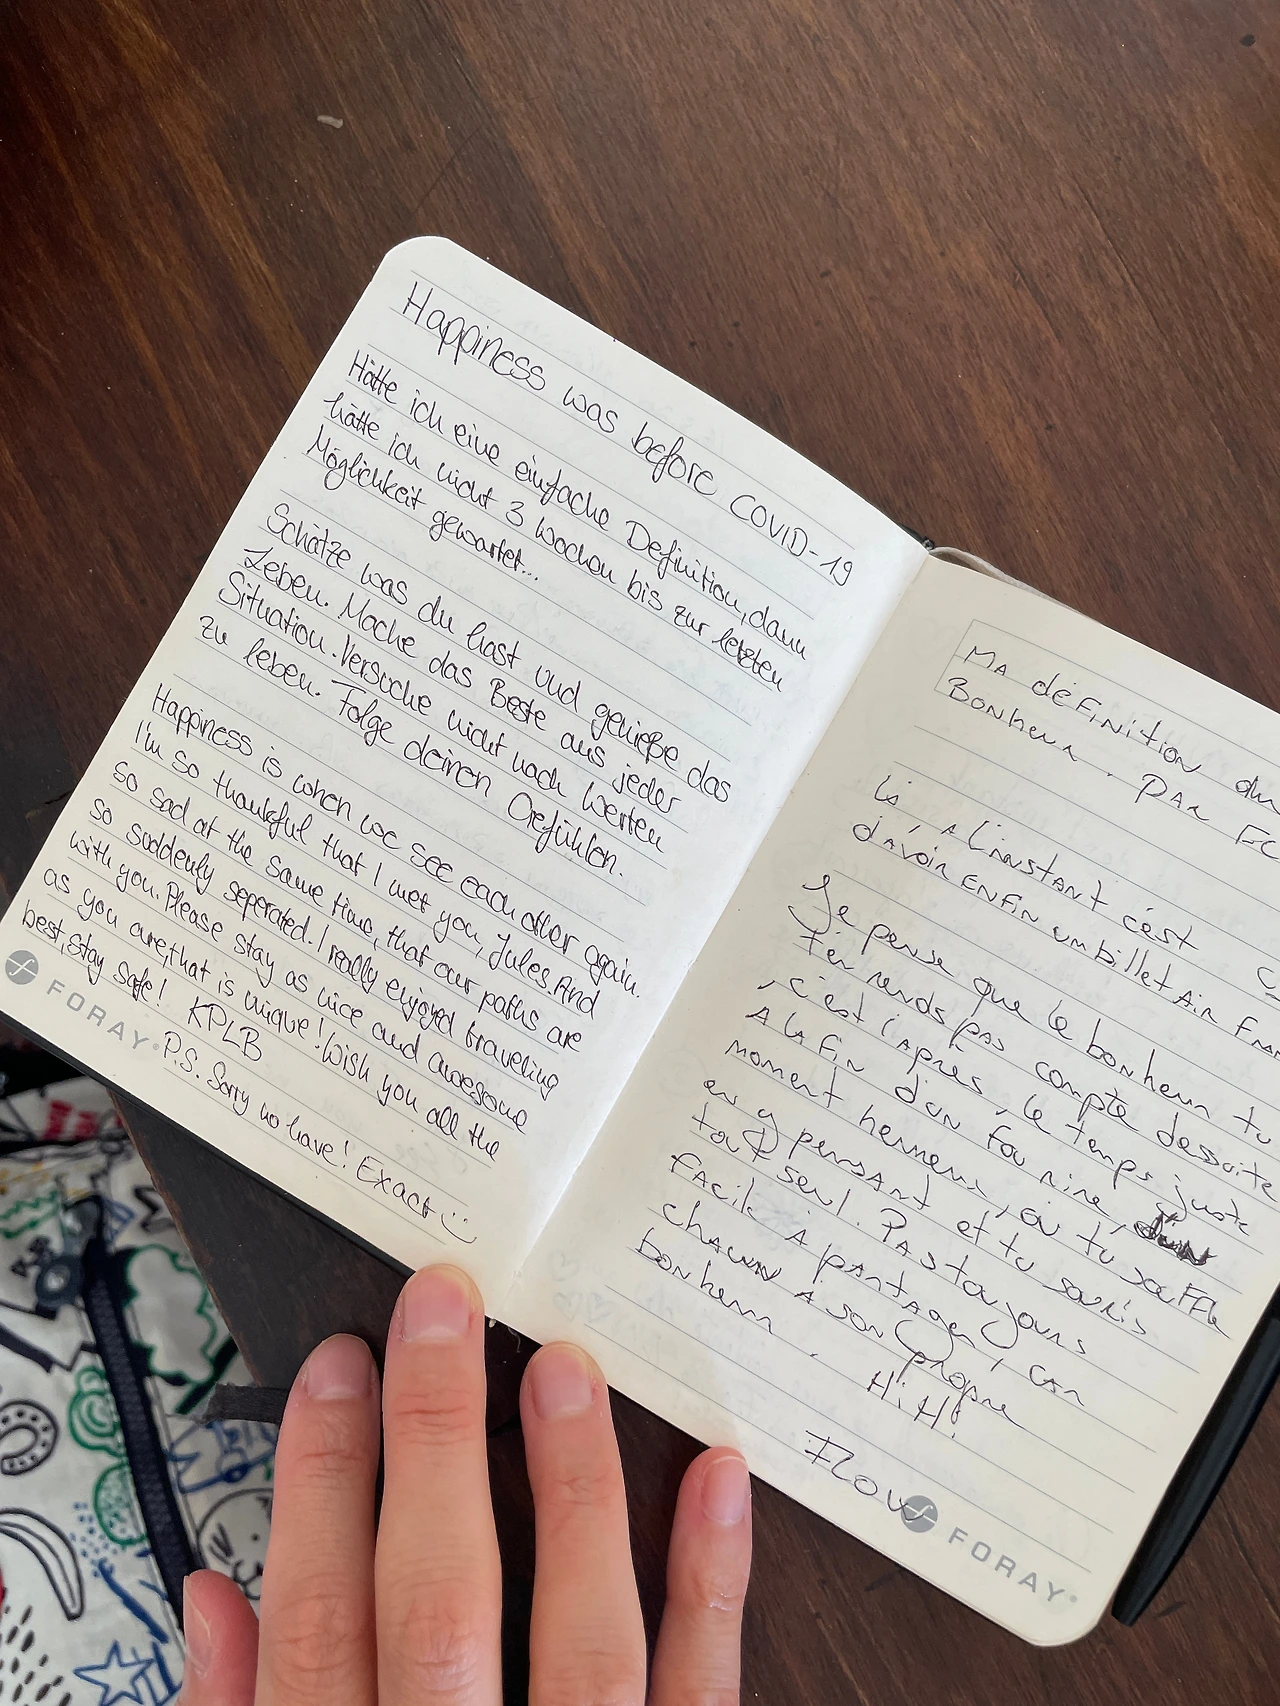 Happiness was before COVID-19
Hätte ich eine einfache Definition, dann
hätte ich nicht 3 Wochen bis zur letzten
Möglichkeit gewartet...
Schätze was du hast und genieße das
Leben. Mache das Beste aus jeder
Situation. Versuche nicht nach Werten
zu leben. Folge deinen Gefühlen.
Happiness is when we see each other again.
I'm so thankful that I met you, Jules. And
so sad at the same time, that our paths are
so suddenly seperated. I really enjoyed traveling
with you. Please stay as nice and awesome
as you are, that is unique! Wish you all the
best, stay safe! KPLB
P.S. Sorry no have! Exact :)
FORAY
MA définition du
Bonheur. PAR
Là, à l'instant c'est
d'avoir ENFIN um billet Air
Je pense que le bonheur tu
t'en rends pas compte dessuite
, c'est l'après, le temps juste
A la fin d'un fou rire,
moment heureux, où tu souffle
en y pensant et tu souris
tout seul. Pas toujours
facile à partager, car
chacun a son propre
bonheur.
H!H!
Flow
FORAY